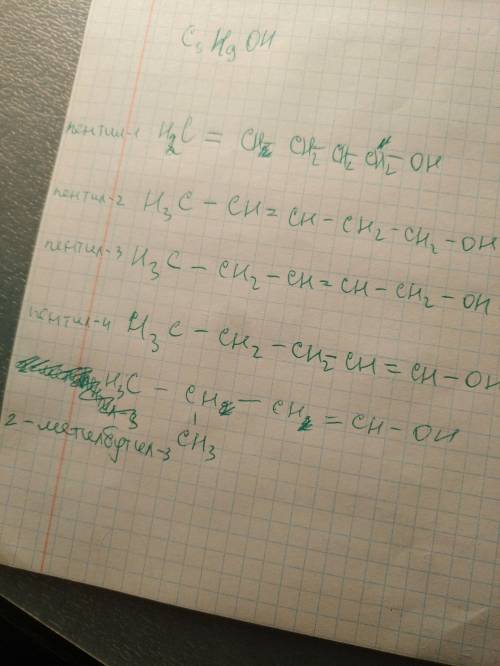 C₅ H₉ OH
пентил-1 H₂C = CH₂ CH₂ CH₂ CH₂ - OH
пентил-2 H₃C - CH = CH - CH₂ - CH₂ - OH
пентил-3 H₃C - CH₂ - CH = CH - CH₂ - OH
пентил-4 H₃C - CH₂ - CH₂ - CH = CH - OH
H₃C - CH - CH = CH - OH
CH₃
2-метилбутил-3